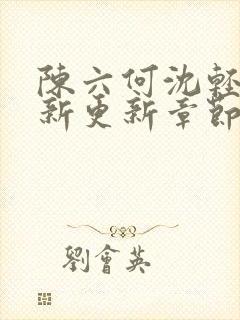 陳六何沈輕
新更新章節
劉會英